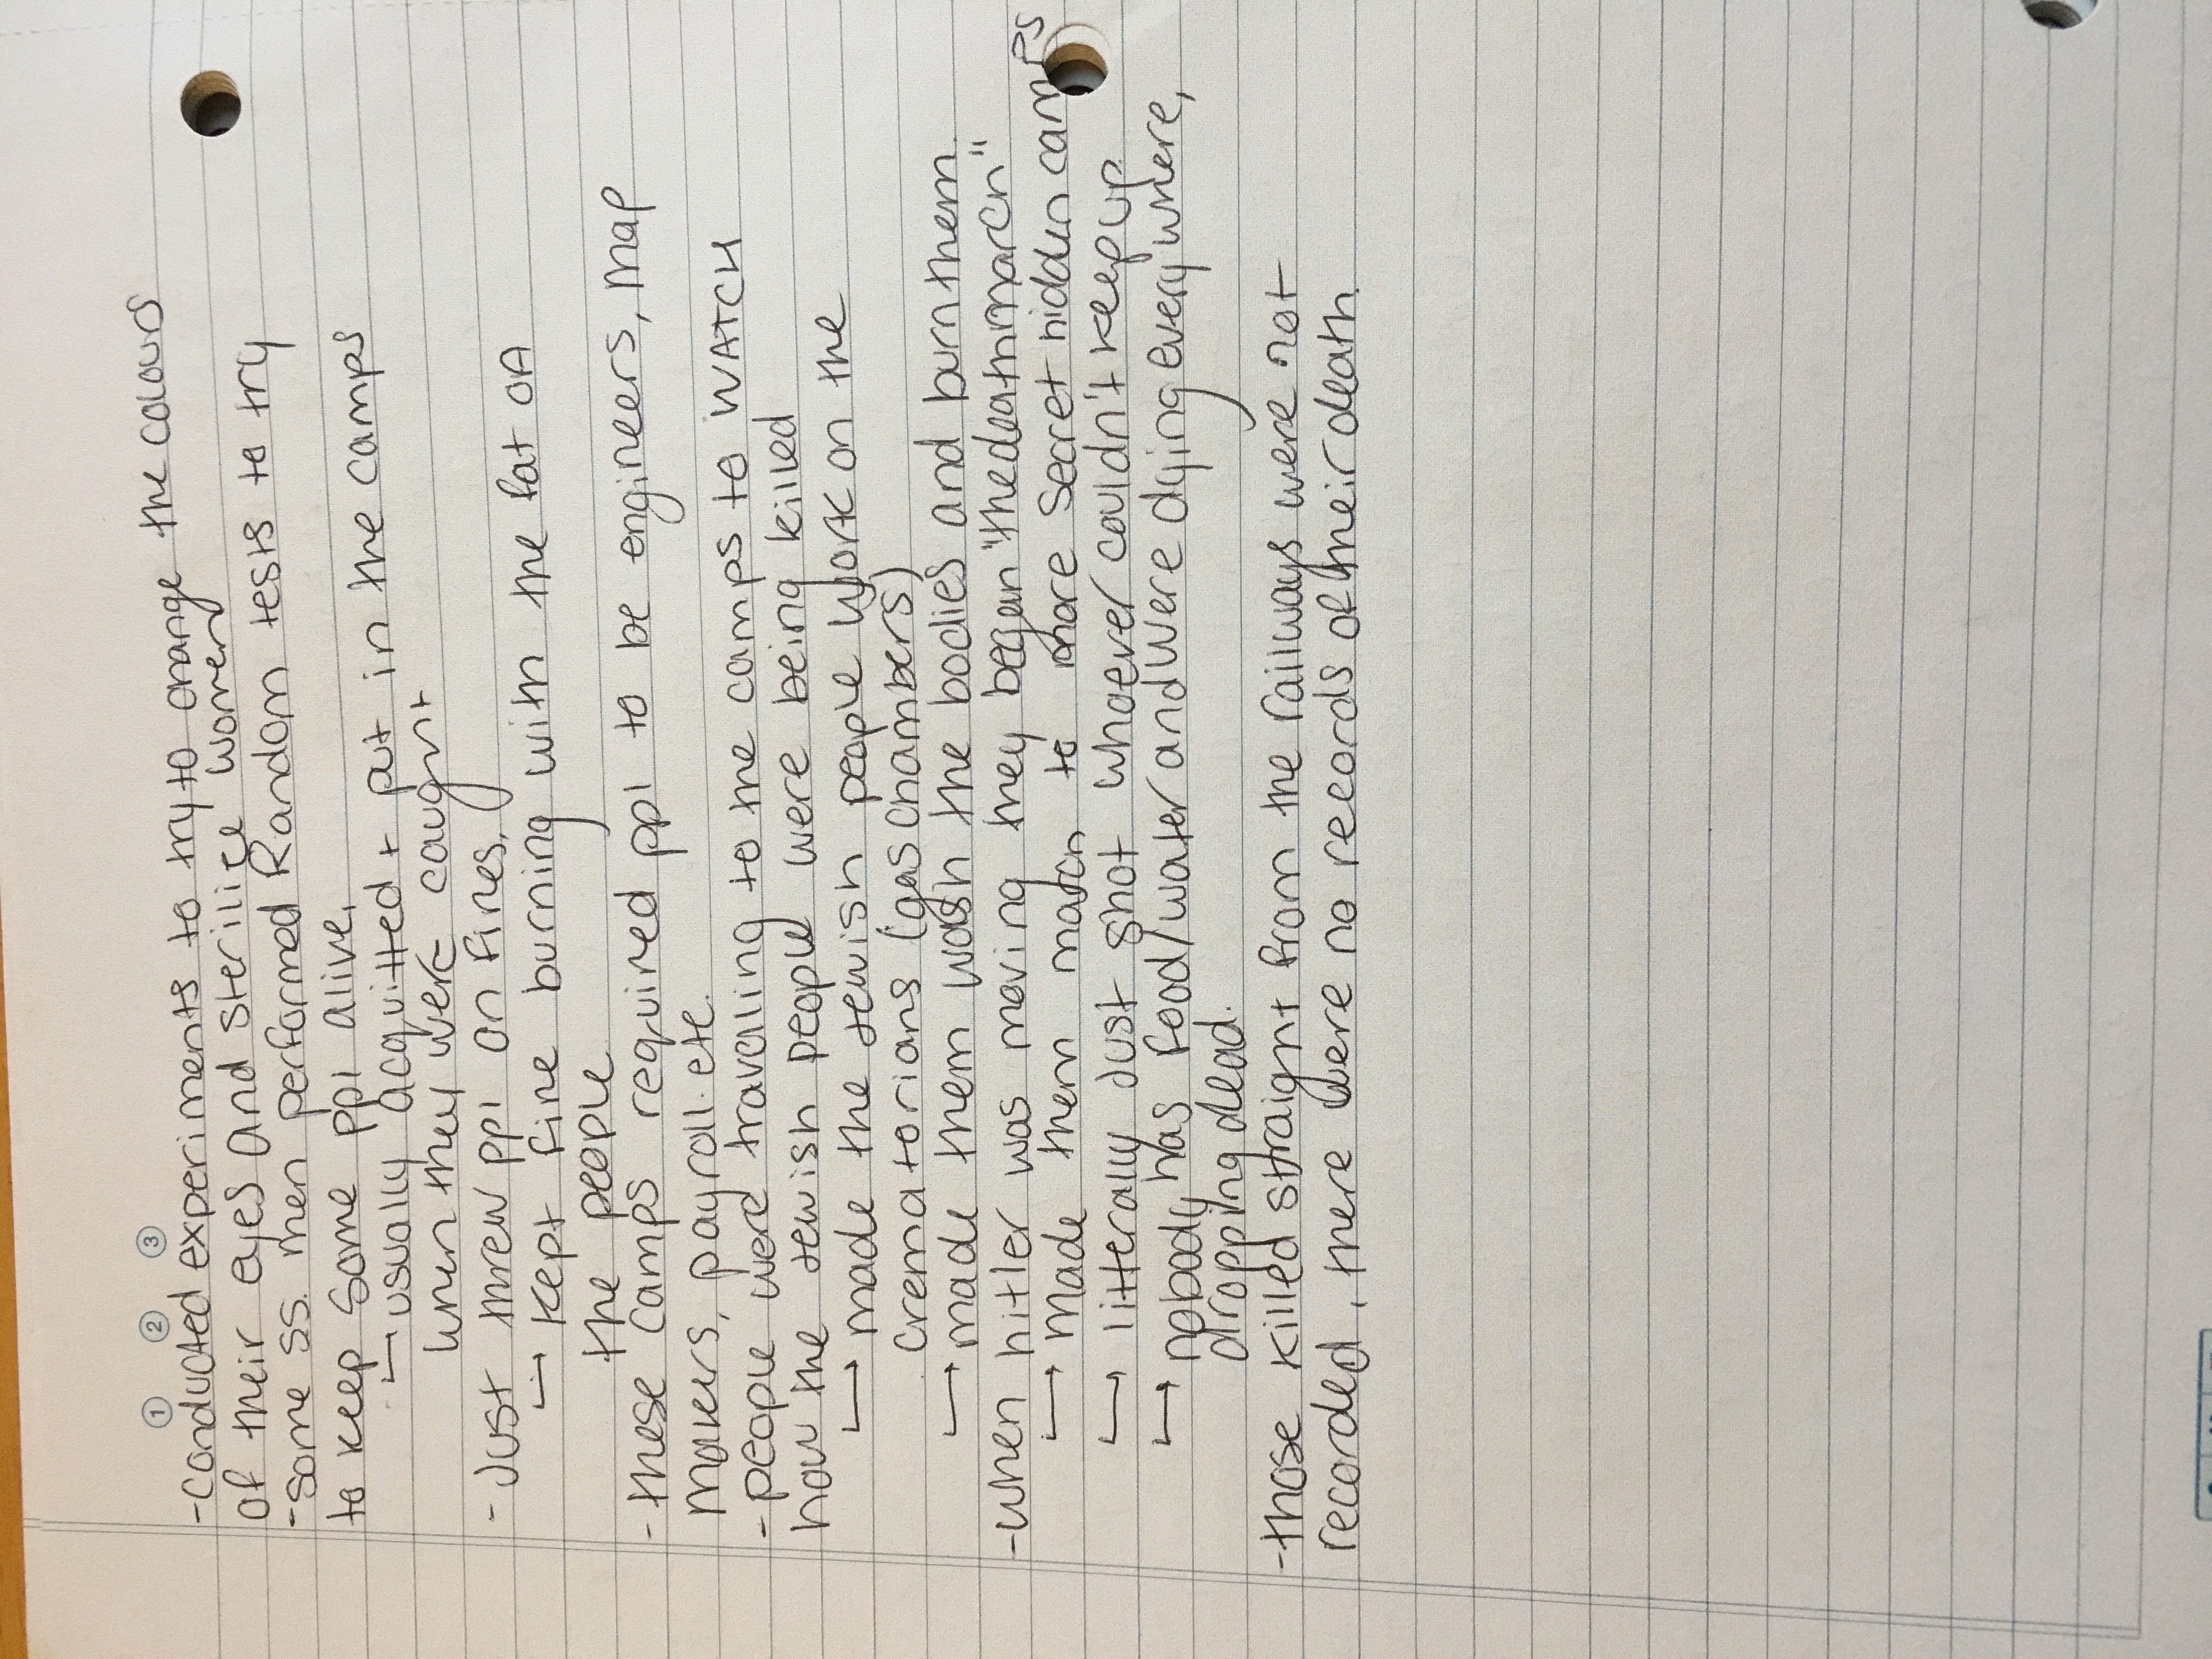 ① ② ③
-conducted experiments to try to change the colours
of their eyes and sterilize women
-some ss. men performed Random tests to try
to keep some ppl alive,
↳ usually acquitted + put in the camps
when they were caught
- Just threw ppl on fires,
↳ kept fire burning with the fat of
the people
- these camps required ppl to be engineers, map
makers, payroll. etc.
- people were travelling to the camps to WATCH
how the Jewish people were being killed
↳ made the Jewish people work on the
crematorians (gas chambers)
↳ made them wash the bodies and burn them.
-when hitler was moving they began "the death march"
↳ made them march to more secret hidden camps
↳ litterally Just shot whoever couldn't keep up.
↳ nobody has food/water and were dying everywhere,
dropping dead.
-those killed straight from the railways were not
recorded, there were no records of their death.